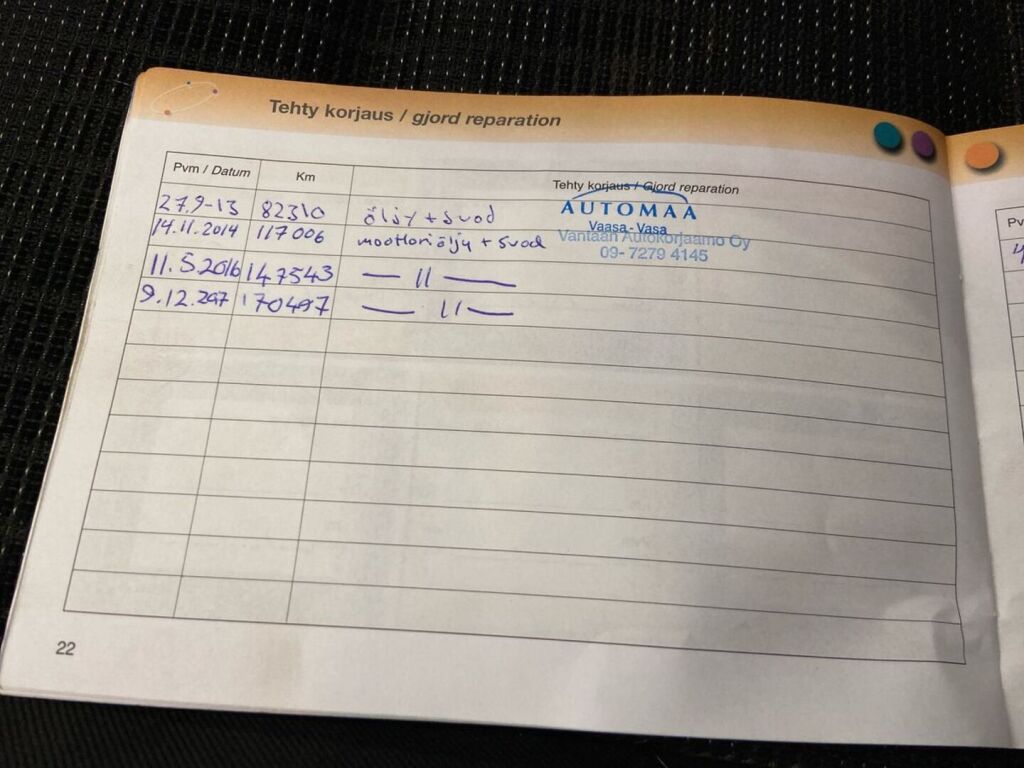 Tehty korjaus / gjord reparation
Pvm / Datum Km Tehty korjaus / Gjord reparation
27.9-13 82310 öljy + suod AUTOMAA
Vaasa - Vasa
14.11.2014 117006 moottoriöljy + suod Vantaan Autokorjaamo Oy
09- 7279 4145
11.5.2016 147543 — 11 —
9.12.2017 170497 — 11 —
22